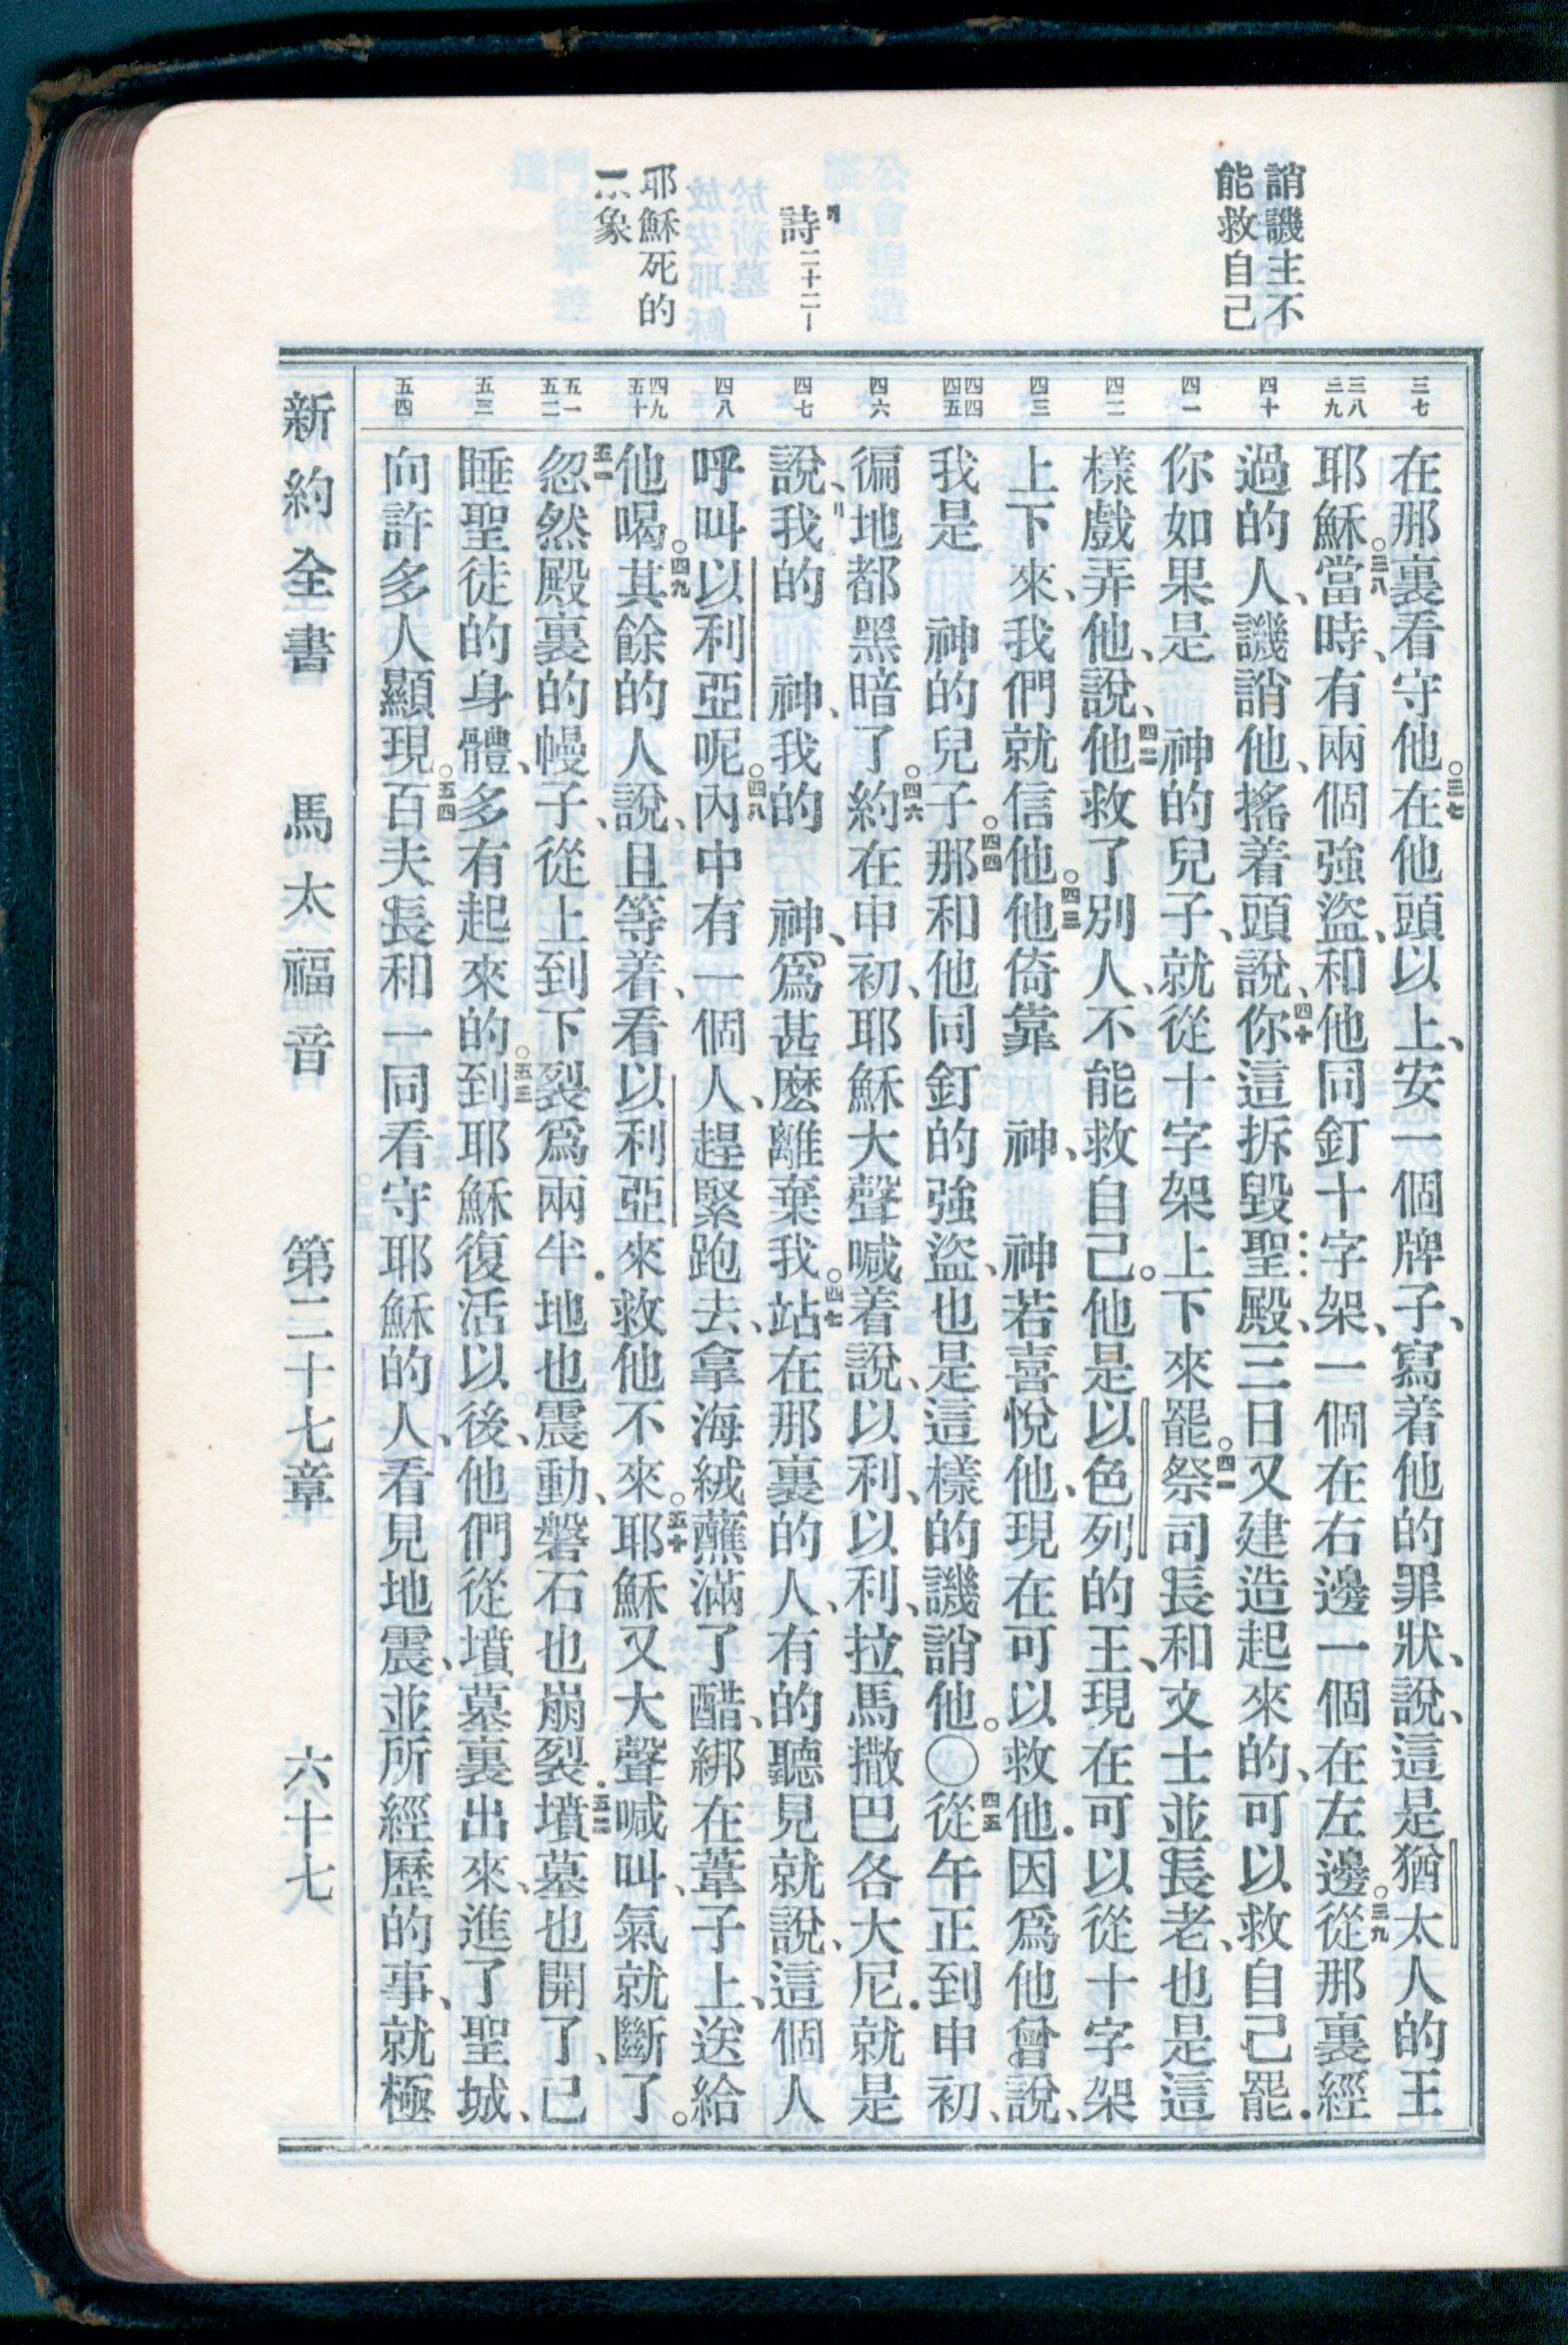 誚譏主不
能救自己
詩二十二1
耶穌死的
景象
三七
三八
三九
四十
四一
四二
四三
四四
四五
四六
四七
四八
四九
五十
五一
五二
五三
五四
在那裏看守他。三七在他頭以上、安一個牌子、寫着他的罪狀、說、這是猶太人的王
耶穌。三八當時、有兩個強盜、和他同釘十字架、一個在右邊一個在左邊。三九從那裏經
過的人、譏誚他、搖着頭說、四十你這拆毀聖殿、三日又建造起來的、可以救自己罷.
你如果是 神的兒子、就從十字架上下來罷。四一祭司長和文士並長老、也是這
樣戲弄他、說、四二他救了別人、不能救自己。他是以色列的王、現在可以從十字架
上下來、我們就信他。四三他倚靠 神、 神若喜悅他、現在可以救他.因爲他曾說、
我是 神的兒子。四四那和他同釘的強盜、也是這樣的譏誚他。〇四五從午正到申初、
徧地都黑暗了。四六約在申初、耶穌大聲喊着說、以利、以利、拉馬撒巴各大尼.就是
說、我的 神、我的 神、爲甚麽離棄我。四七站在那裏的人、有的聽見就說、這個人
呼叫以利亞呢。四八內中有一個人、趕緊跑去、拿海絨蘸滿了醋、綁在葦子上、送給
他喝。四九其餘的人說、且等着、看以利亞來救他不來。五十耶穌又大聲喊叫、氣就斷了。
五一忽然殿裏的幔子、從上到下裂爲兩半.地也震動、磐石也崩裂.五二墳墓也開了、已
睡聖徒的身體、多有起來的。五三到耶穌復活以後、他們從墳墓裏出來、進了聖城、
向許多人顯現。五四百夫長和一同看守耶穌的人、看見地震、並所經歷的事、就極
新約全書 馬太福音 第二十七章 六十七